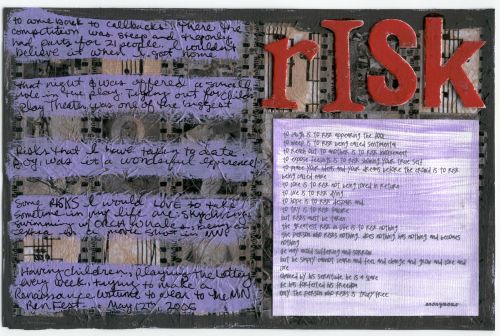 to come back to callbacks! There, the
competition was steep and they only
had parts for 21 people. I couldn't
believe it when I got home
that night & was offered a
role in the play. Trying out for
Play Theater was one of the biggest
Risks that I have taken to date
Boy, was it a wonderful experience!
Some RISKS I would LOVE to take
sometime in my life are: skydiving,
swimming w/
in a movie shot in MN
Having children, playing the lottery
every week, trying to make a
Renaissance costume to wear to the MN
RenFest. May 20, 2006
rISk
to laugh is to risk appearing the fool
to weep is to risk being called sentimental
to reach out to another is to risk involvement
to expose feelings is to risk showing your true self
to place your ideas and your dreams before the crowd is to risk
being called naive
to love is to risk not being loved in return
to live is to risk dying
to hope is to risk despair and
to try is to risk failure
but risks must be taken
the greatest risk in life is to risk nothing
the person who risks nothing, does nothing, has nothing and becomes
nothing
he may avoid suffering and sorrow
but he simply cannot learn and feel and change and grow and love and
live
chained by his servitude he is a slave
he has forfeited his freedom
only the person who risks is truly free
anonymous